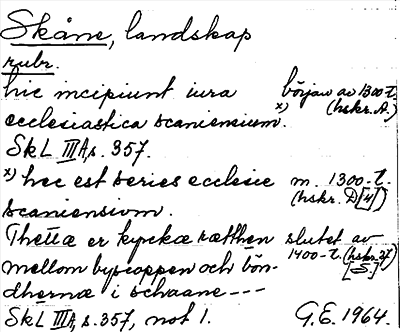 Skåne, landskap
rubr.
hic incipiunt iura början av 1300-t.
ecclesiastica scaniensium. x) (hskr. A.)
SkL III A, s. 357.
x) hec est series ecclesie m. 1300-t.
scaniensivm. (hskr. D[4])
Thettæ er kyrckæ rætthen slutet av
mellom byscoppen och bön- 1400-t. (hskr. 37)
dhernæ i schaane --- [5]
SkL III A, s. 357, not 1. G.E. 1964.